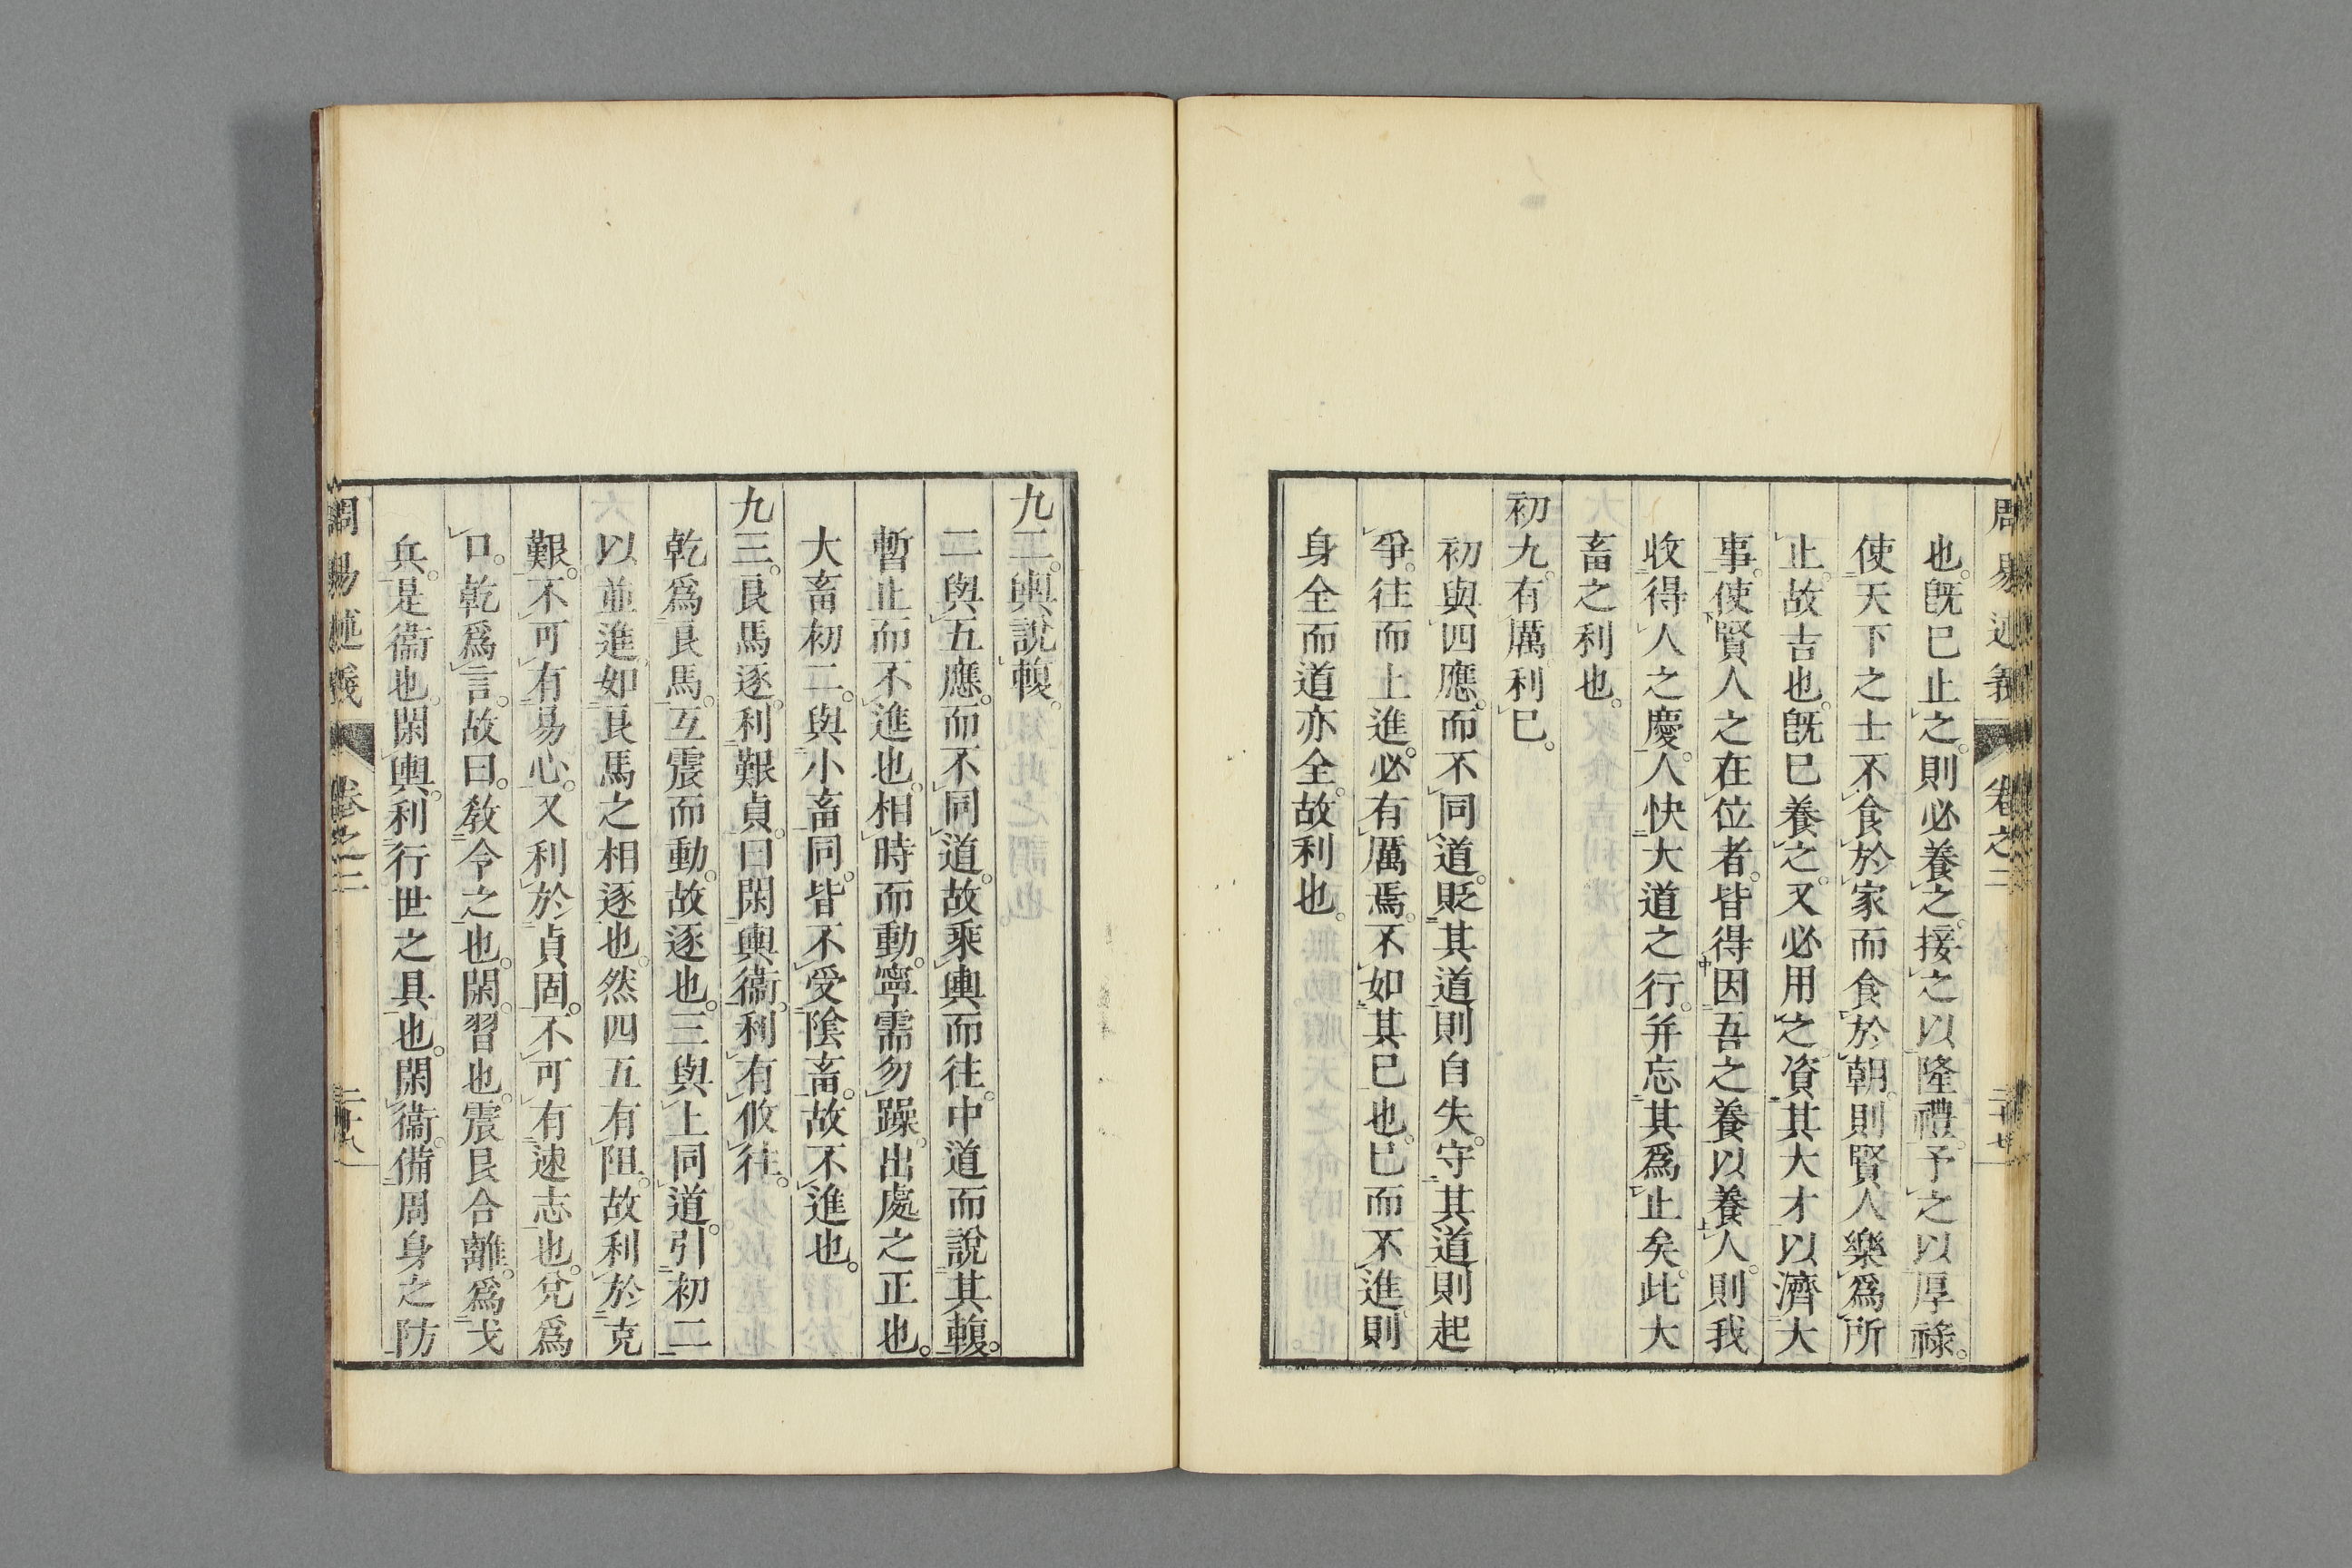 周易述義 卷之二 二十七
也。既已止之。則必養之。接之以隆禮。予之以厚祿。
使天下之士不食於家而食於朝。則賢人樂爲所
止。故吉也。既已養之。又必用之。資其大才以濟大
事。使賢人之在位者。皆得因吾之養以養人。則我
收得人之慶。人快大道之行。并忘其爲止矣。此大
畜之利也。
初九。有厲。利已。
初與四應。而不同道。貶其道則自失。守其道則起
爭。往而上進。必有厲焉。不如其已也。已而不進。則
身全而道亦全。故利也。
九二。輿說輹。
二與五應。而不同道。故乘輿而往。中道而說其輹。
暫止而不進也。相時而動。寧需勿躁。出處之正也。
大畜初二。與小畜同。皆不受陰畜。故不進也。
九三。良馬逐。利艱貞。曰閑輿衞。利有攸往。
乾爲良馬。互震而動。故逐也。三與上同道。引初二
以並進。如良馬之相逐也。然四五有阻。故利於克
艱。不可有易心。又利於貞固。不可有速志也。兌爲
口。乾爲言。故曰。教令之也。閑。習也。震艮合離。爲戈
兵。是衞也。閑輿。利行世之具也。閑衞。備周身之防
周易述義 卷之二 二十八